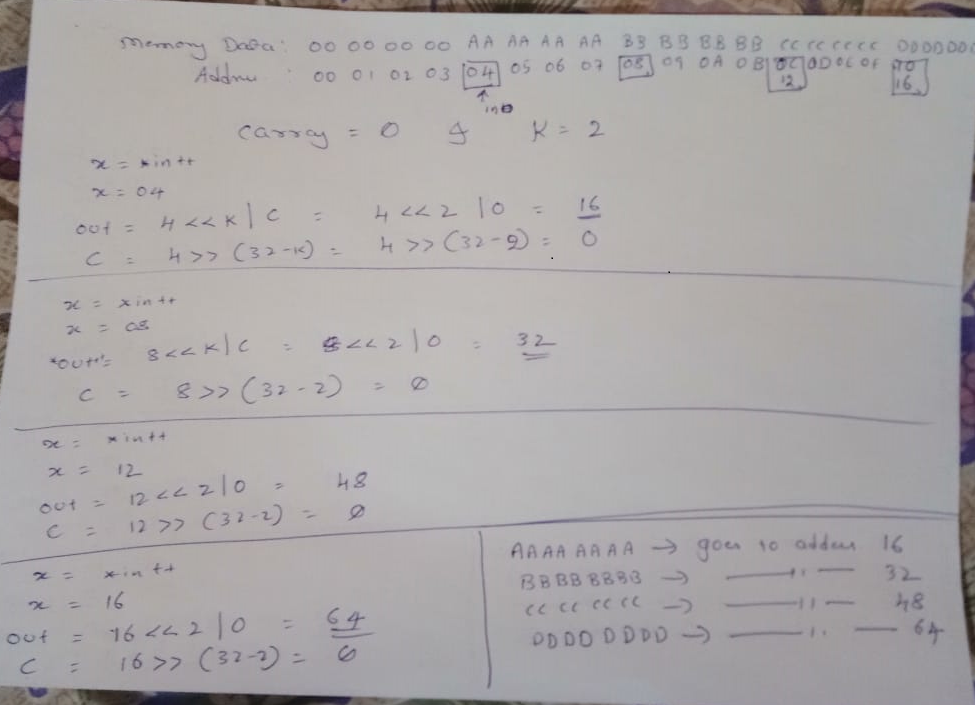 Memory Data: 00 00 00 00 AA AA AA AA BB BB BB BB CC CC CC CC DD DD DD
: 00 01 02 03 04 05 06 07 08 09 0A 0B 0C 0D 0E 0F 10
12 16
Carray = 0 K = 2
x = *in++
x = 04
out = 4 << K | C = 4 << 2 | 0 = 16
C = 4 >> (32-K) = 4 >> (32-2) = 0
x = *in++
x = 08
"out"= 8 << K | C = 8 << 2 | 0 = 32
C = 8 >> (32-2) = 0
x = *in++
x = 12
out = 12 << 2 | 0 = 48
C = 12 >> (32-2) = 0
x = *in++
x = 16
out = 16 << 2 | 0 = 64
C = 16 >> (32-2) = 0
AAAA AAAA → goes to 16
BBBB BBBB → — 11 — 32
CC CC CC CC → — 11 — 48
DDDD DDDD → — 11 — 64